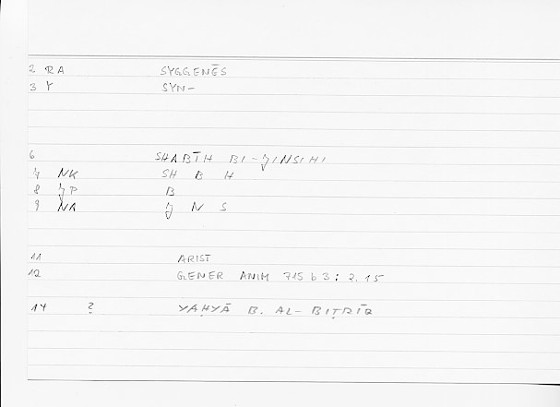 2 RA SYGGENĒS
3 Y SYN-
6 SHABĪH BI-ǦINSIHI
7 NK SH B H
8 ǦP B
9 NK Ǧ N S
11 ARIST
12 GENER ANIM 715 b 3 : 2.15
14 ? YAḤYĀ B. AL-BIṬRĪQ